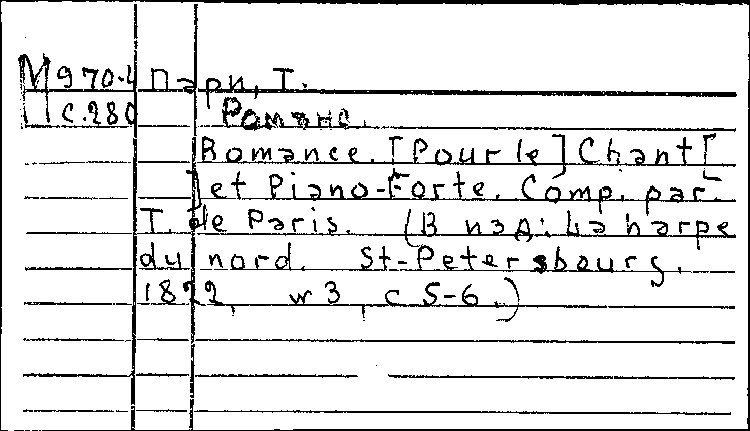 М970.4 Пари, Т.
с.280 Романс.
Romance. [Pour le] Chant [
] et Piano-Forte. Comp. par.
T. de Paris. (В изд: La harpe
du nord. St-Petersbourg.
1822, № 3, с 5-6.)